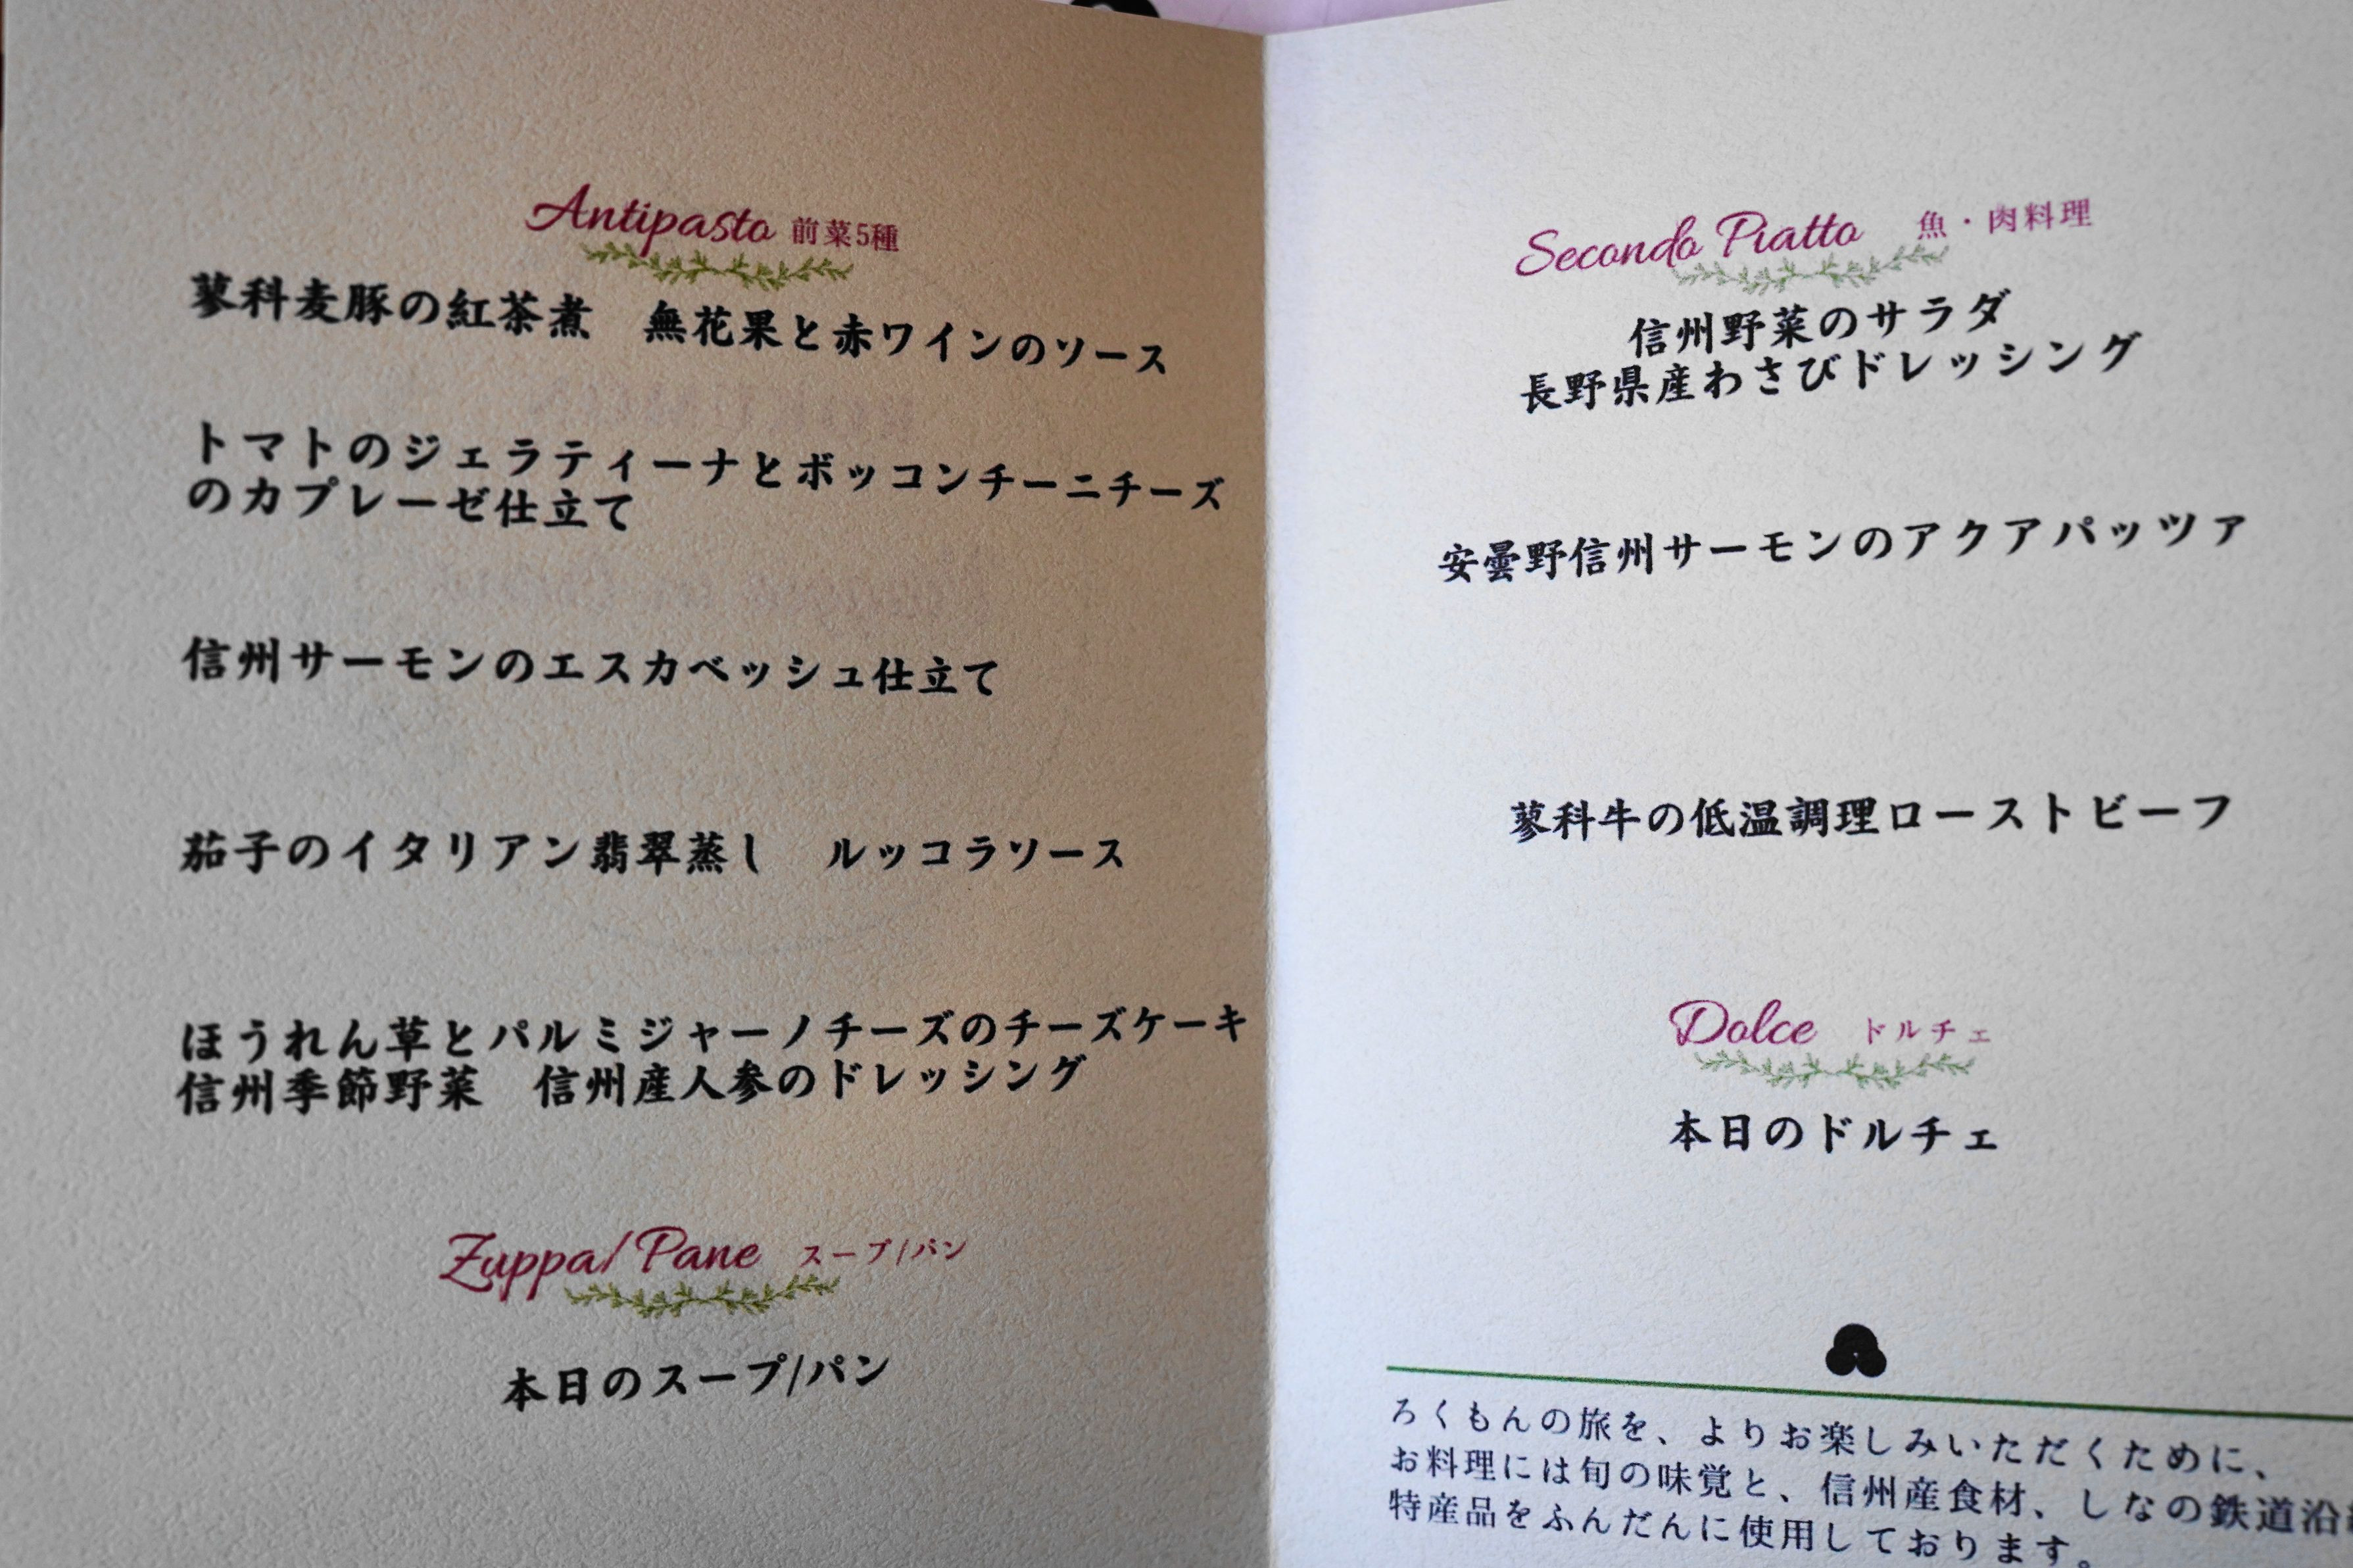 Antipasto 前菜5種
蓼科麦豚の紅茶煮　無花果と赤ワインのソース
トマトのジェラティーナとボッコンチーニチーズ
のカプレーゼ仕立て
信州サーモンのエスカベッシュ仕立て
茄子のイタリアン翡翠蒸し　ルッコラソース
ほうれん草とパルミジャーノチーズのチーズケーキ
信州季節野菜　信州産人参のドレッシング
Zuppa/Pane スープ/パン
本日のスープ/パン
Secondo Piatto 魚・肉料理
信州野菜のサラダ
長野県産わさびドレッシング
安曇野信州サーモンのアクアパッツァ
蓼科牛の低温調理ローストビーフ
Dolce ドルチェ
本日のドルチェ
ろくもんの旅を、よりお楽しみいただくために、
お料理には旬の味覚と、信州産食材、しなの鉄道沿
特産品をふんだんに使用しております。